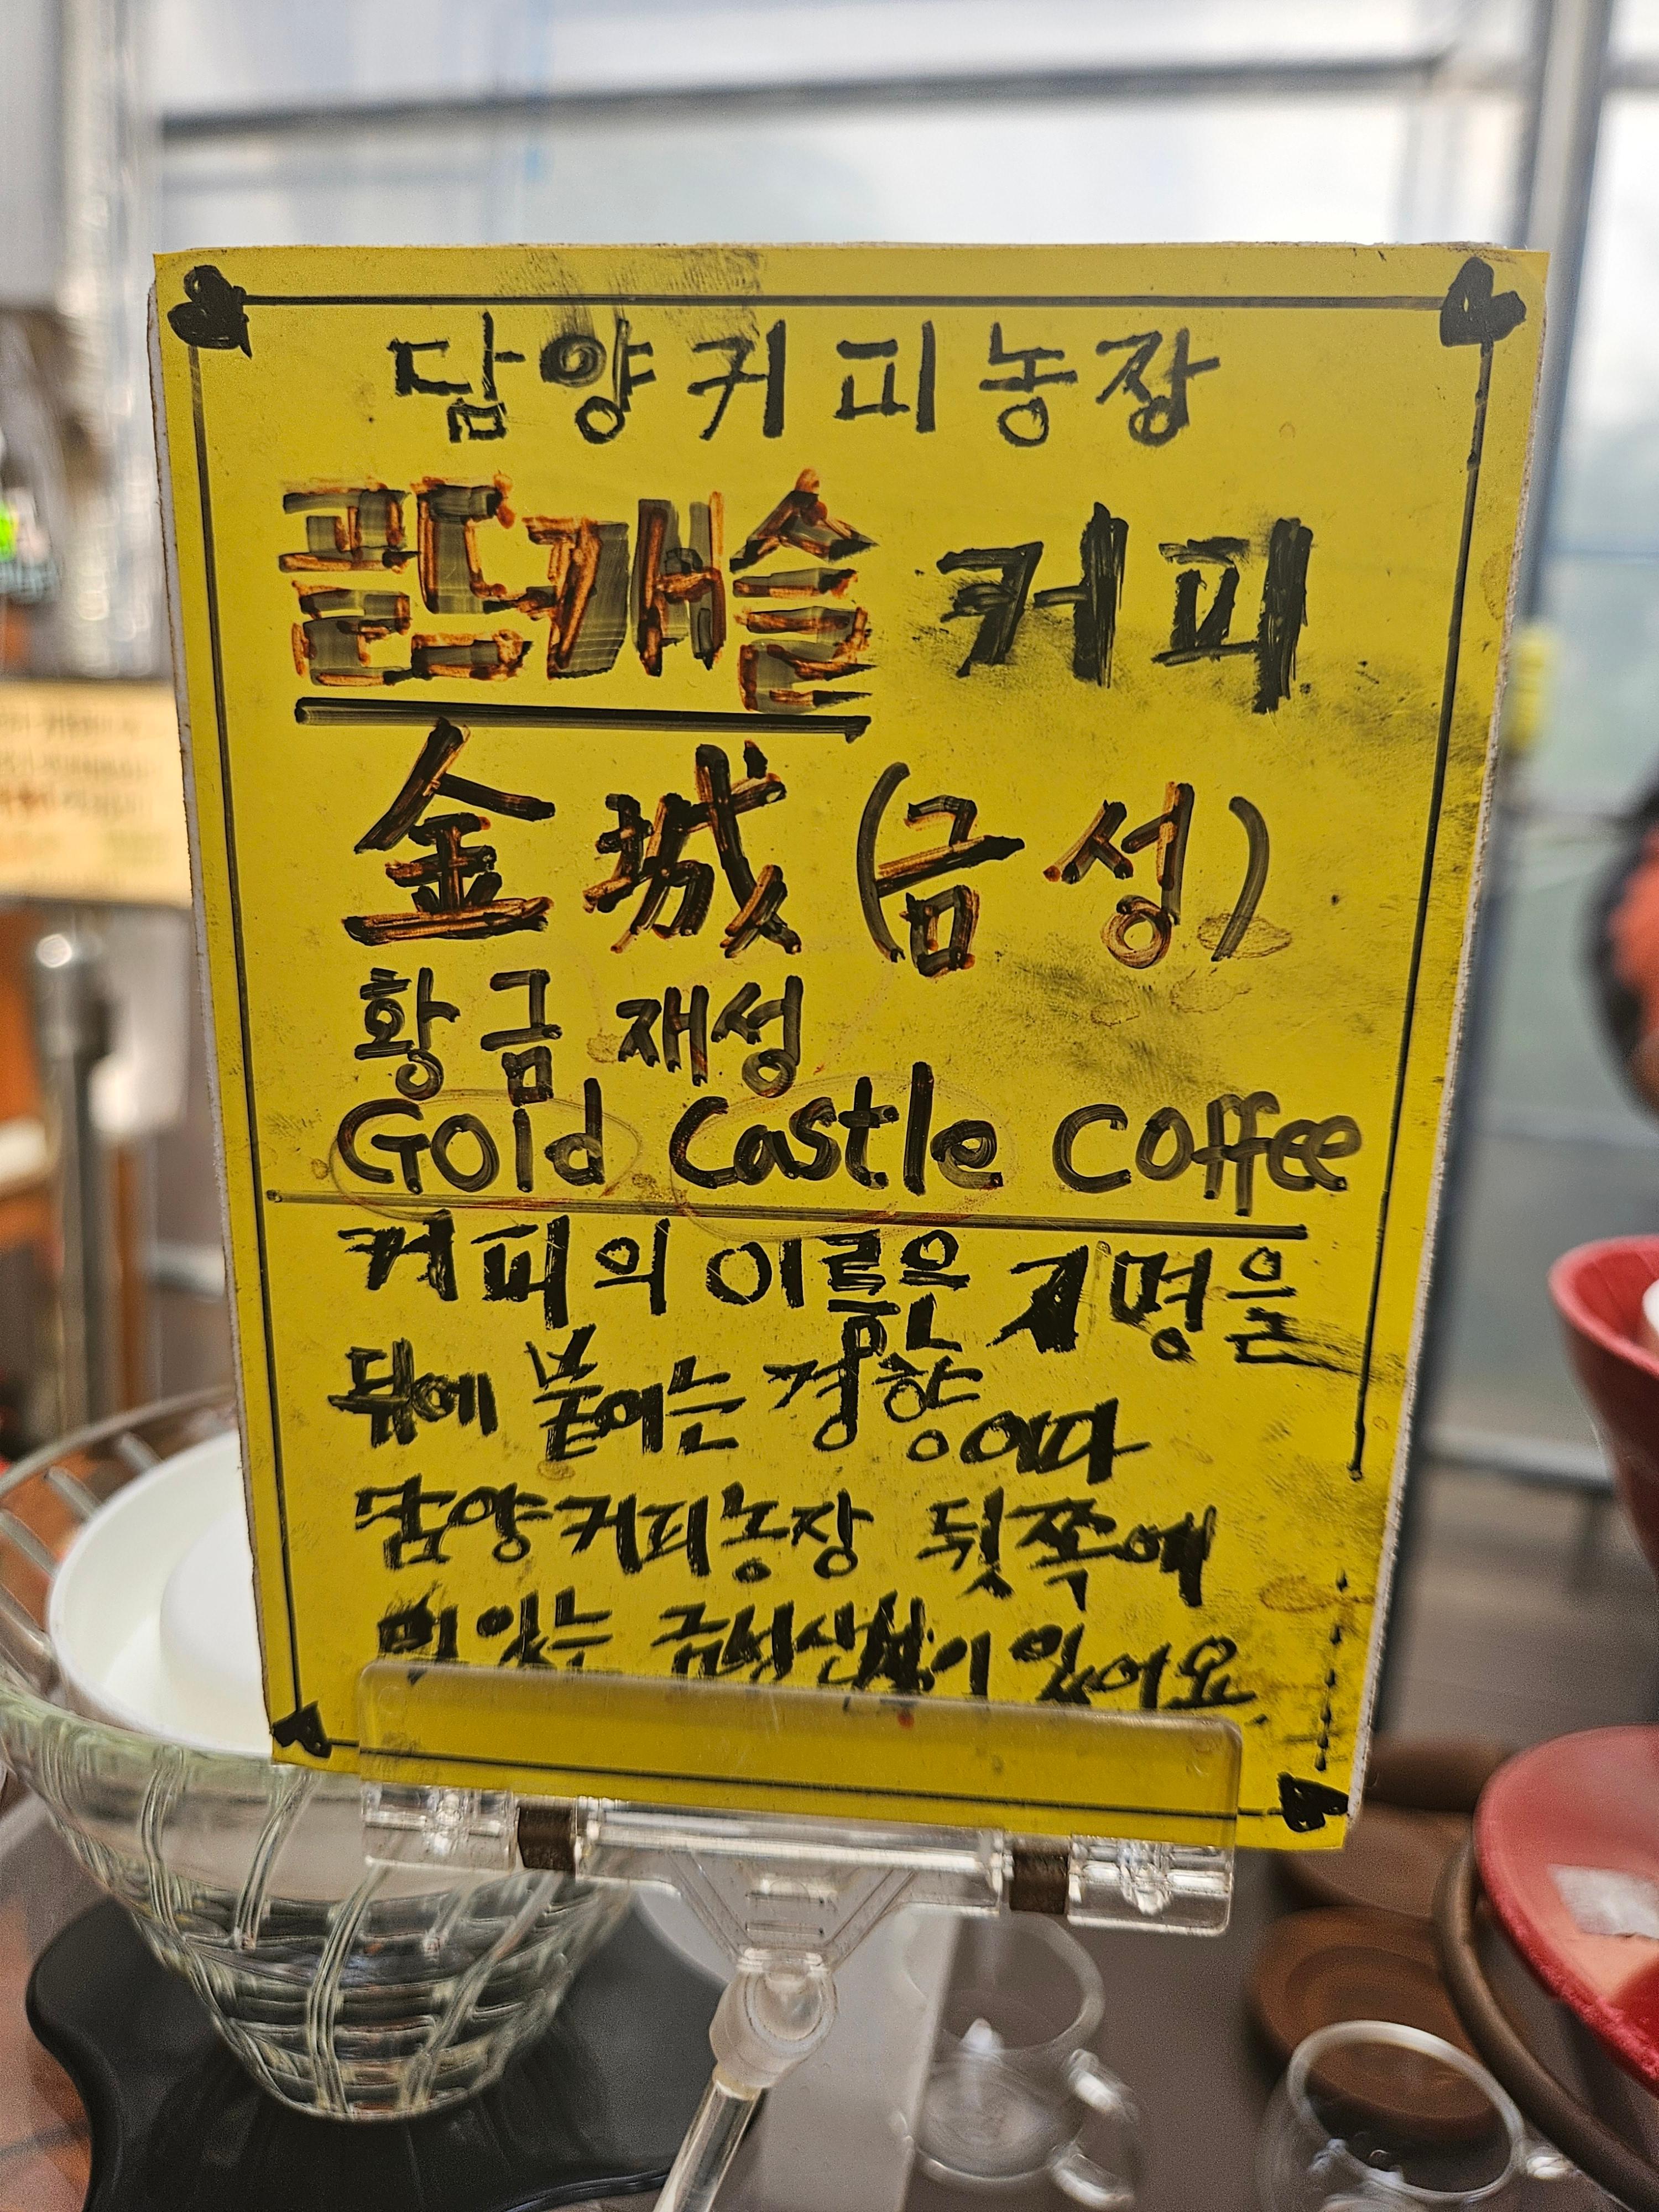 담양커피농장
골드캐슬 커피
金城 (금성)
황금 재성
Gold Castle Coffee
커피의 이름은 지명을
뒤에 붙이는 경향이다
담양커피농장 뒷쪽에
멋있는 금성산성이 있어요.